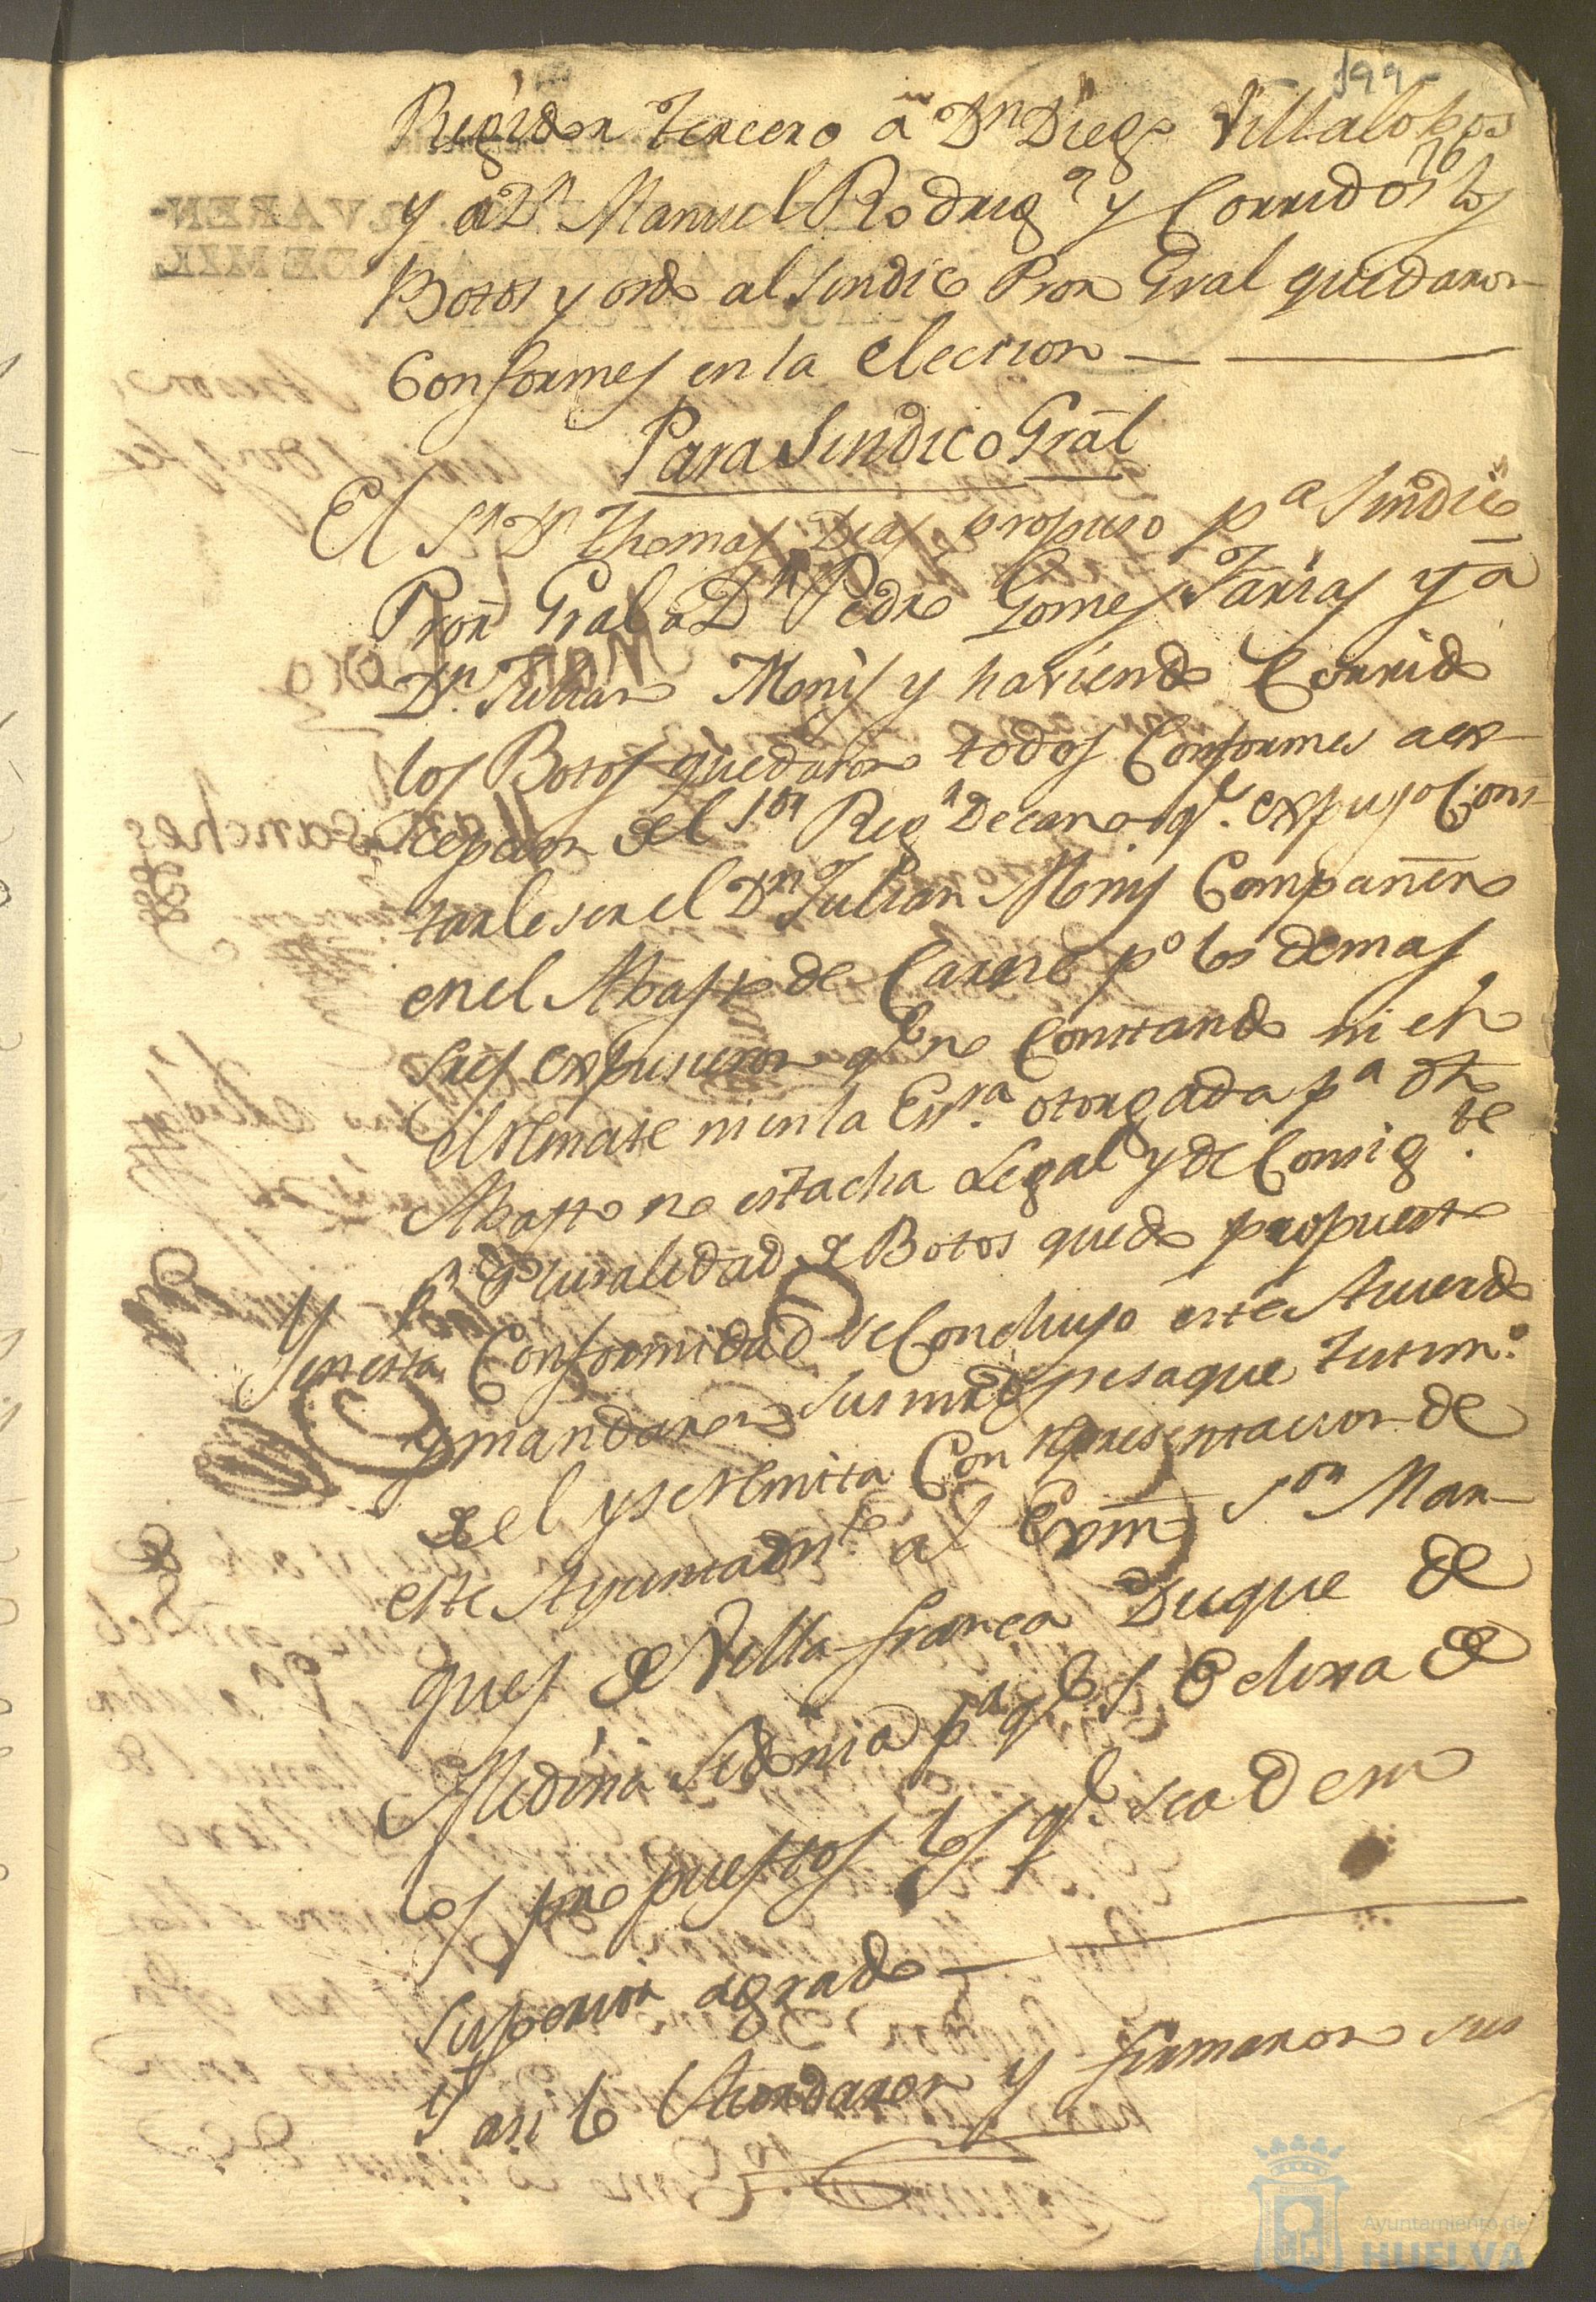 199
Regidor tercero a Dn Diego Villalobos
y a Dn Manuel Rodrigz y Corridos los
Botos y oido al Sindico Pror Gral quedaron
Conformes en la eleccion
Para Sindico Gral
El Sr Dn Thomas Dias propuso pa Sindico
Pror Gral a Dn Pedro Gomes Farias y a
Dn Julian Monis y haviendo Corrido
los Botos quedaron todos Conformes a ex-
cepcion del Sor Regr Decano qe. expuso Cons-
tarle ser el Dn Julian Monis Compañero
en el Abasto de Carne po los demas
Sres expusieron qe no Constando ni en
el Remate ni en la Essra. otorgada pa dho
Abasto no es tacha Legal y de Consigte.
pr Pluralidad de Botos quedo propuesto
Y en esta Conformidad se Concluyo este Acuerdo
y mandaron sus mrds se saque testimo.
de el y se Remita Con representacion de
este Ayuntamto. al Exmo Sor Mar-
ques de Villafranca Duque de
Medina Sidonia pa qe S E elixa de
los propuestos los qe. sea de su
Superior agrado
Y asi lo Acordaron y firmaron sus
Ayuntamiento de
HUELVA